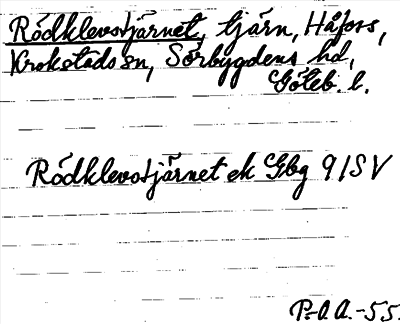 Rödklevstjärnet, tjärn, Håfors,
Krokstads sn, Sörbygdens hd,
Göteb. l.
Rödklevstjärnet ek Gbg 9/SV
P.A.A.-55.